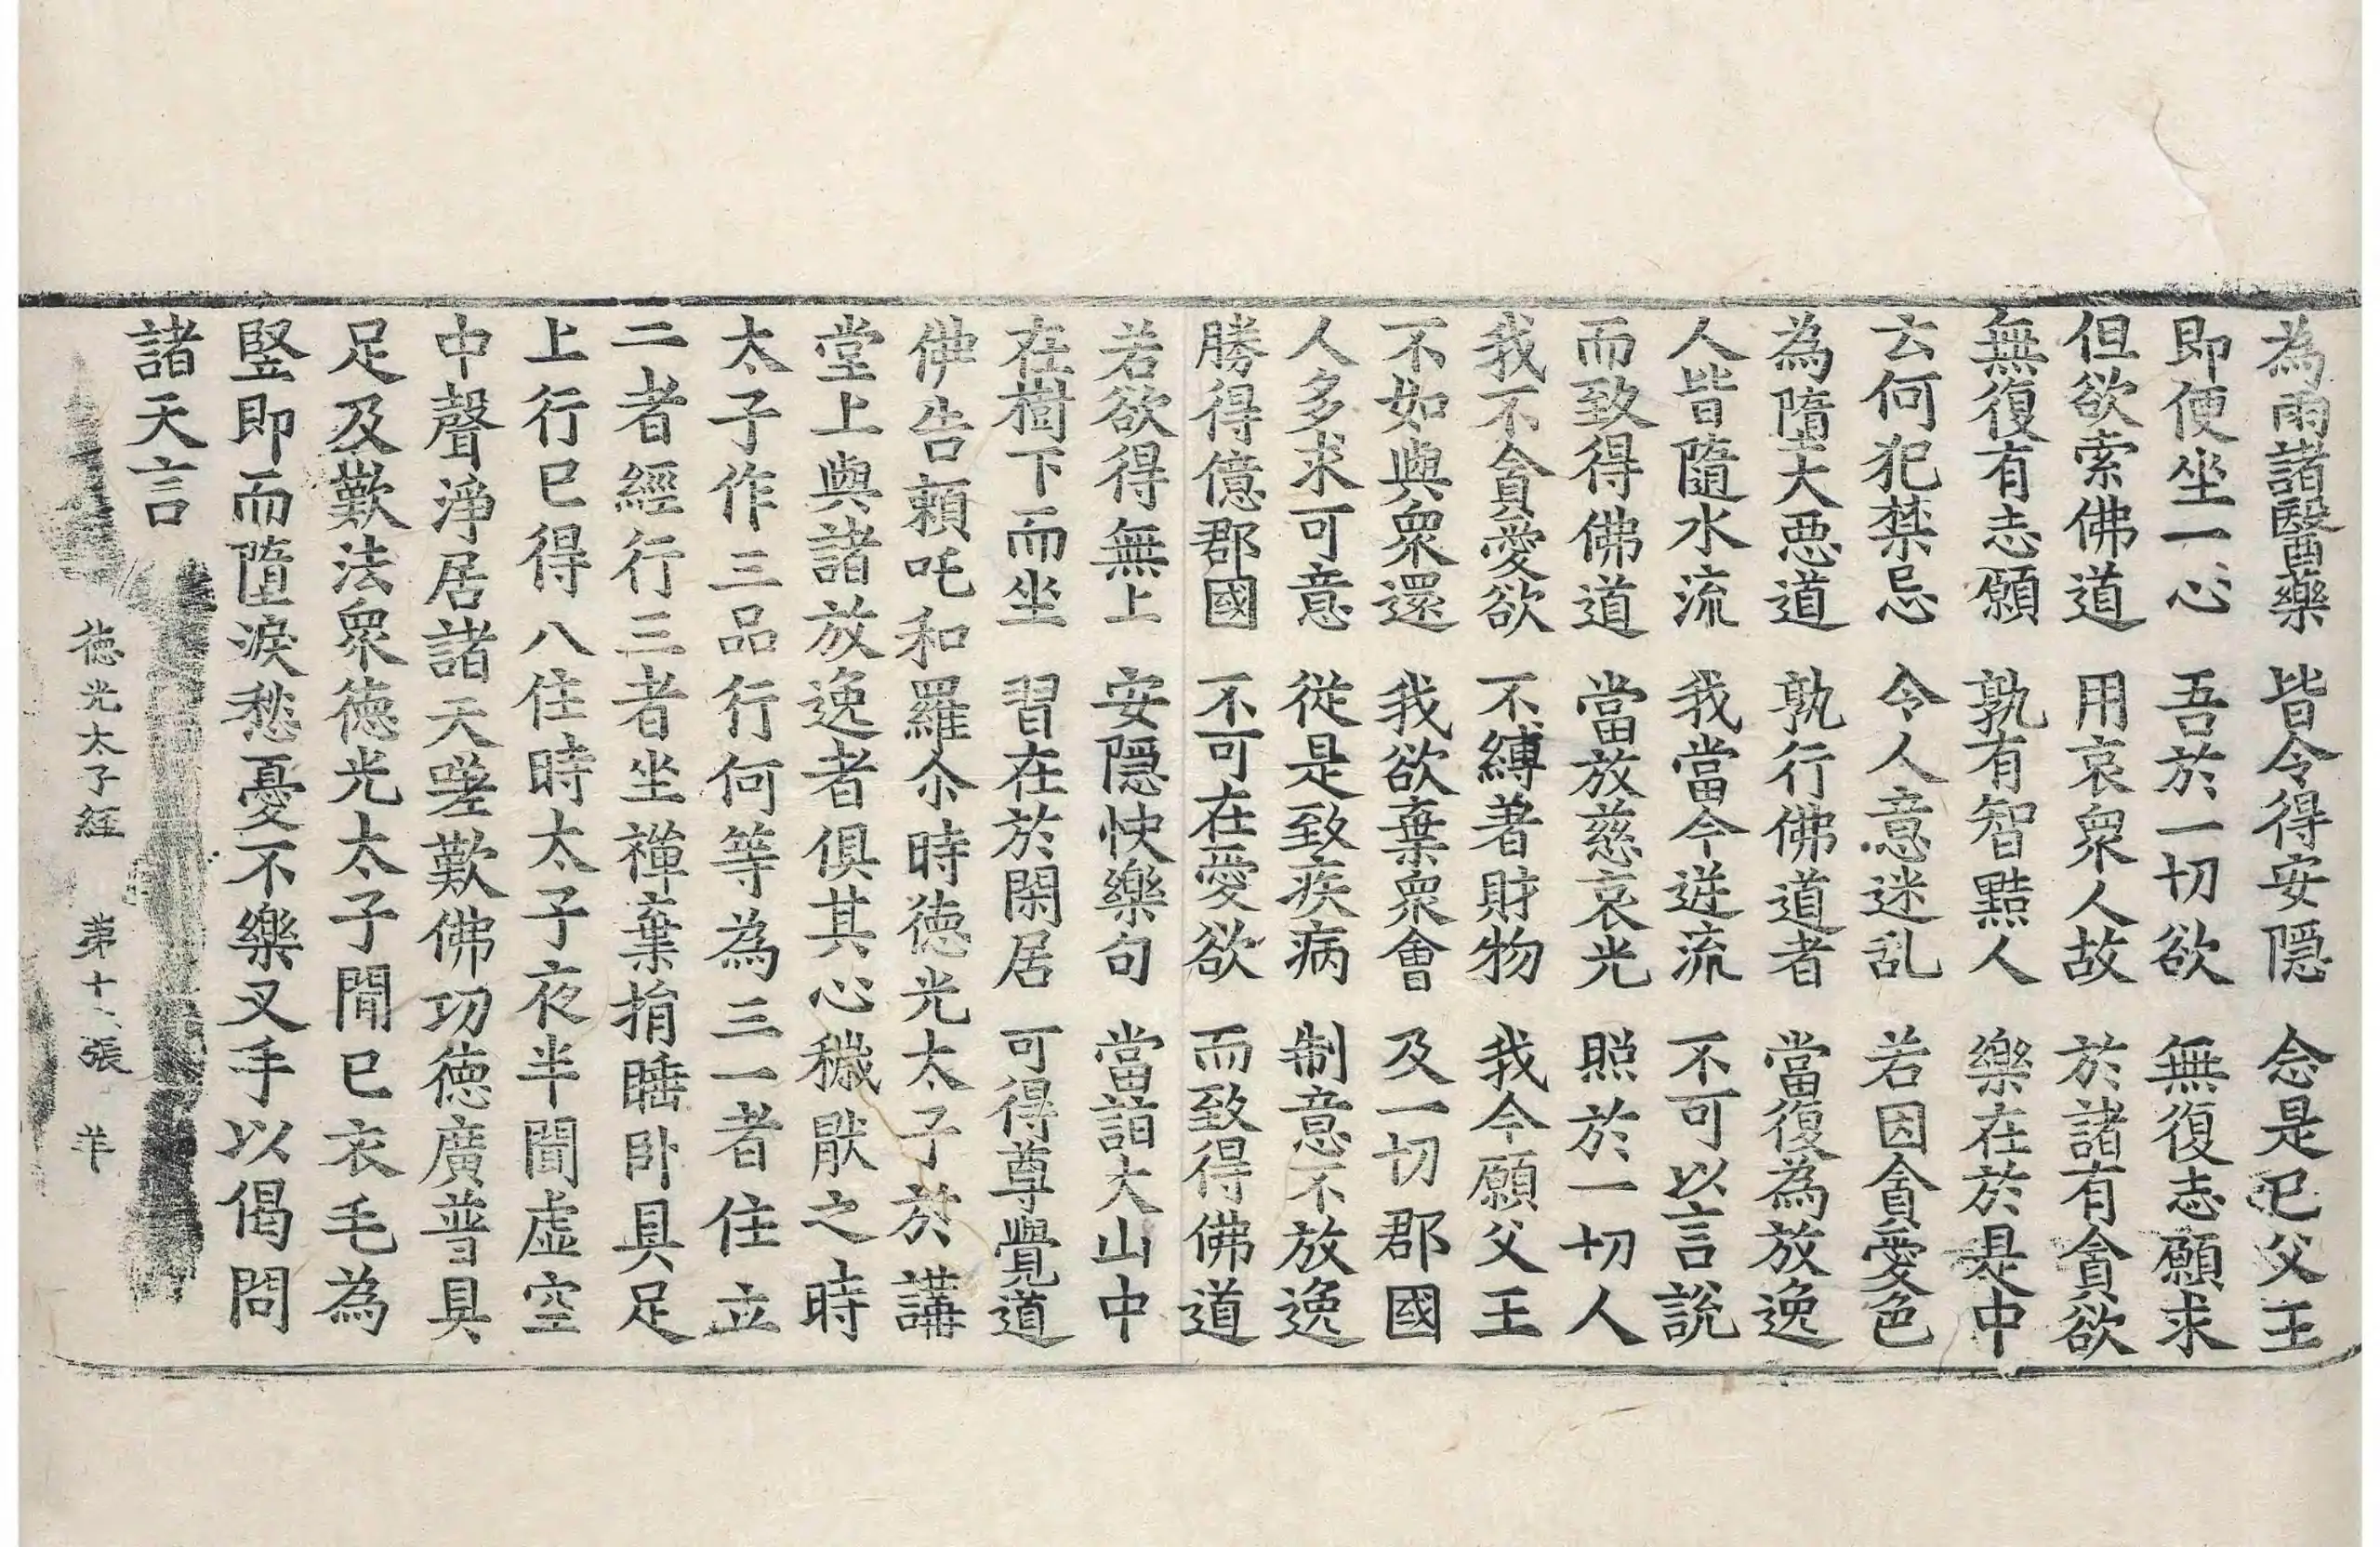 為雨諸醫藥　皆令得安隱　念是已父王
即便坐一心　吾於一切欲　無復志願求
但欲索佛道　用哀衆人故　於諸有貪欲
無復有志願　孰有智黠人　樂在於是中
云何犯禁忌　令人意迷乱　若因貪愛色
為墮大惡道　孰行佛道者　當復為放逸
人皆隨水流　我當今逆流　不可以言說
而致得佛道　當放慈哀光　照於一切人
我不貪愛欲　不縛著財物　我今願父王
不如與衆還　我欲棄衆會　及一切郡國
人多求可意　從是致疾病　制意不放逸
勝得億郡國　不可在愛欲　而致得佛道
若欲得無上　安隱快樂句　當詣大山中
在樹下而坐　習在於閑居　可得尊覺道
佛告頼吒和羅尒時德光太子於講
堂上與諸放逸者俱其心穢厭之時
太子作三品行何等為三一者住立
二者經行三者坐禪棄捐睡卧具足
上行已得八住時太子夜半聞虛空
中聲淨居諸天嗟歎佛功德廣普具
足及歎法衆德光太子聞已衣毛為
竪即而墮淚愁憂不樂叉手以偈問
諸天言
德光太子経　苐十六張　羊